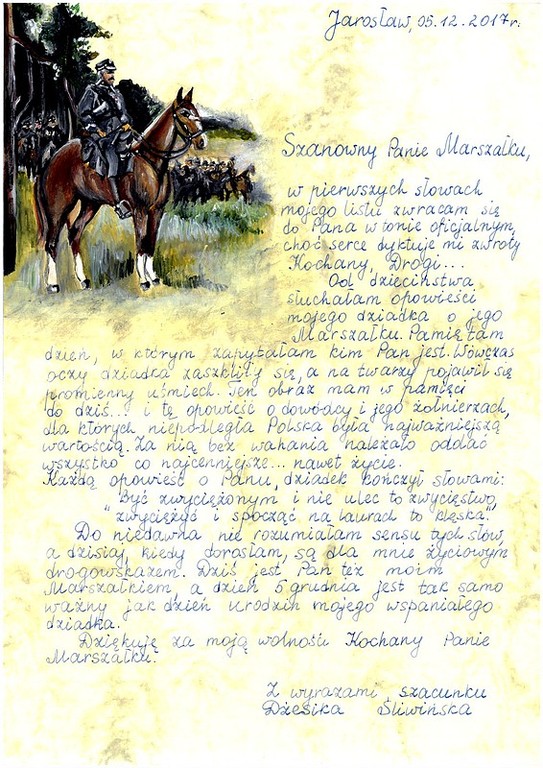 Jarosław, 05.12.2017r.
Szanowny Panie Marszałku,
w pierwszych słowach
mojego listu zwracam się
do Pana w tonie oficjalnym,
choć serce dyktuje mi zwroty
Kochany, Drogi...
Od dzieciństwa
słuchałam opowieści
mojego dziadka o jego
Marszałku. Pamiętam
dzień, w którym zapytałam kim Pan jest. Wówczas
oczy dziadka zaszkliły się, a na twarzy pojawił się
promienny uśmiech. Ten obraz mam w pamięci
do dziś... i tę opowieść o dowódcy i jego żołnierzach,
dla których niepodległa Polska była najważniejszą
wartością. Za nią bez wahania należało oddać
wszystko co najcenniejsze... nawet życie.
Każdą opowieść o Panu, dziadek kończył słowami:
"Być zwyciężonym i nie ulec to zwycięstwo,
zwyciężyć i spocząć na laurach to klęska."
Do niedawna nie rozumiałam sensu tych słów,
a dzisiaj, kiedy dorosłam, są dla mnie życiowym
drogowskazem. Dziś jest Pan też moim
Marszałkiem, a dzień 5 grudnia jest tak samo
ważny jak dzień urodzin mojego wspaniałego
dziadka.
Dziękuję za moją wolność Kochany Panie
Marszałku.
Z wyrazami szacunku
Dżesika Śliwińska